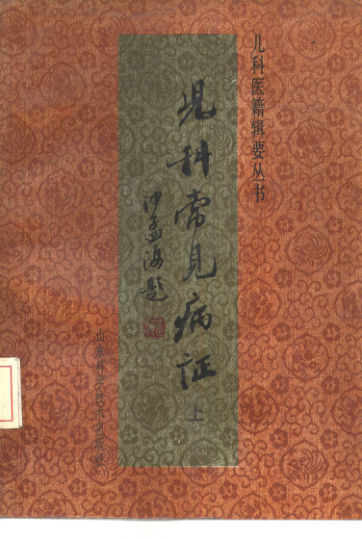 儿科医籍辑要丛书
儿科常见病证
沙孟海题
上
山东科学技术出版社